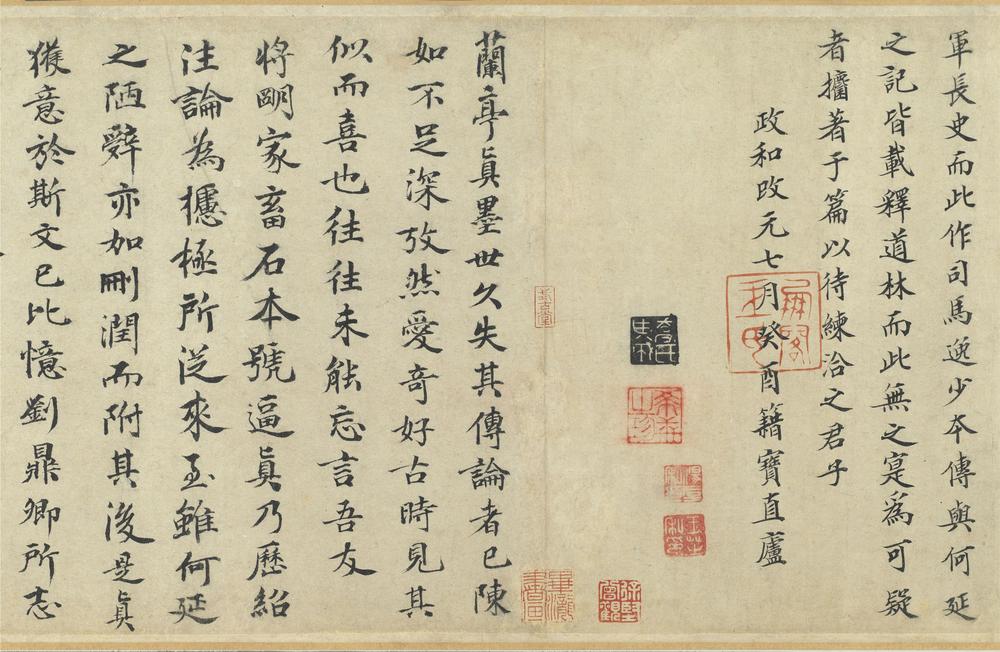 軍長史而此作司馬逸少本傳與何延
之記皆載釋道林而此無之寔為可疑
者攟著于篇以待練洽之君乎
政和改元七月癸酉籍寶直廬
蘭亭真墨世久失其傳論者已陳
如不足深攷然愛奇好古時見其
似而喜也往往未能忘言吾友
將明家畜石本號逼真乃歷紹
注論為攄極所從來至雖何延
之陋辤亦加刪潤而附其後是真
獲意於斯文已比憶劉鼎卿所志